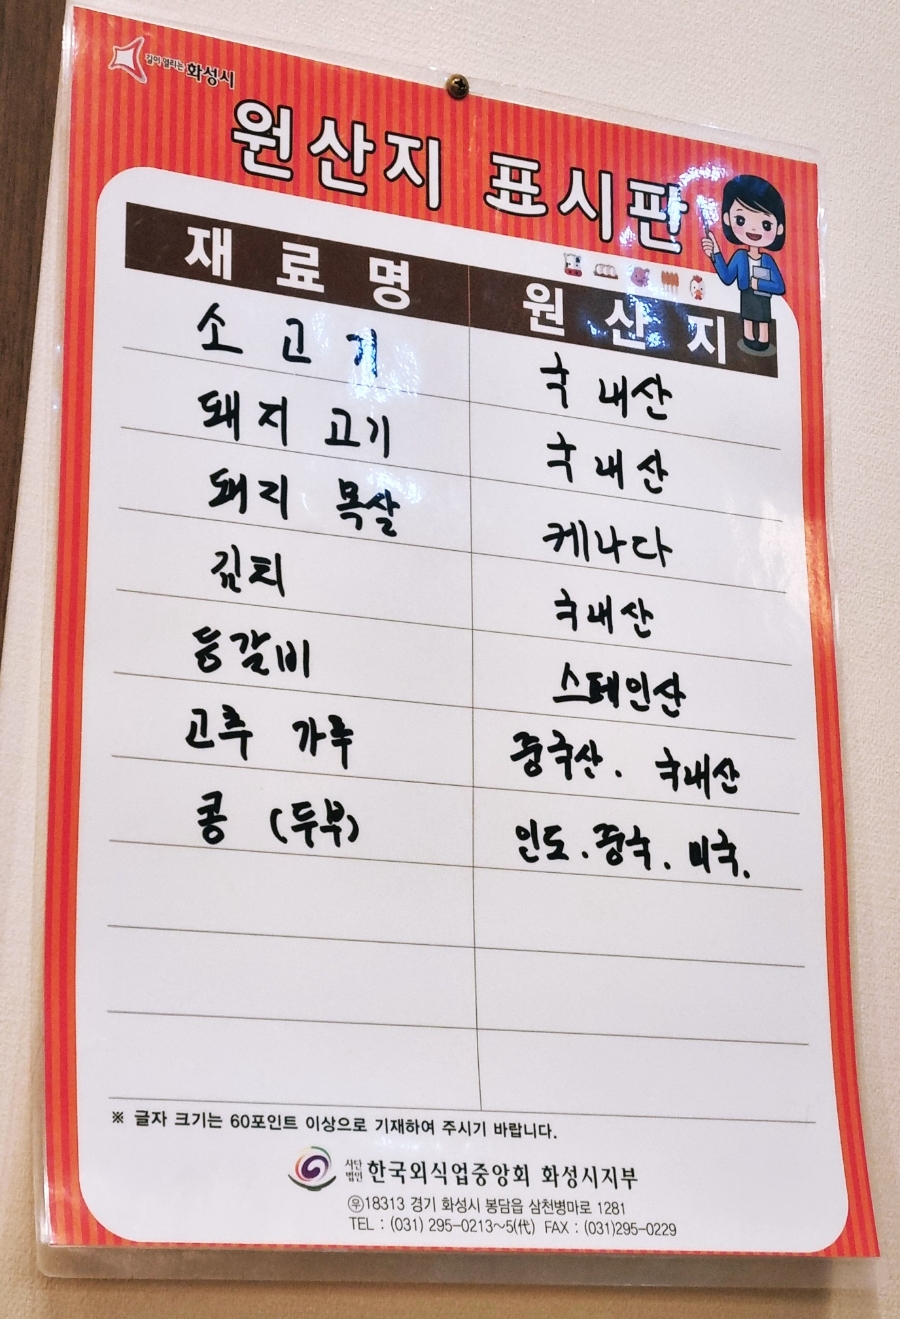 길이 열리는 화성시
원산지 표시판
재료명 원산지
소고기 국내산
돼지고기 국내산
돼지 목살 케나다
김치 국내산
등갈비 스페인산
고추 가루 중국산. 국내산
콩 (두부) 인도. 중국. 미국.
※ 글자 크기는 60포인트 이상으로 기재하여 주시기 바랍니다.
사단법인 한국외식업중앙회 화성시지부
㉾18313 경기 화성시 봉담읍 삼천병마로 1281
TEL : (031) 295-0213~5(代) FAX : (031)295-0229